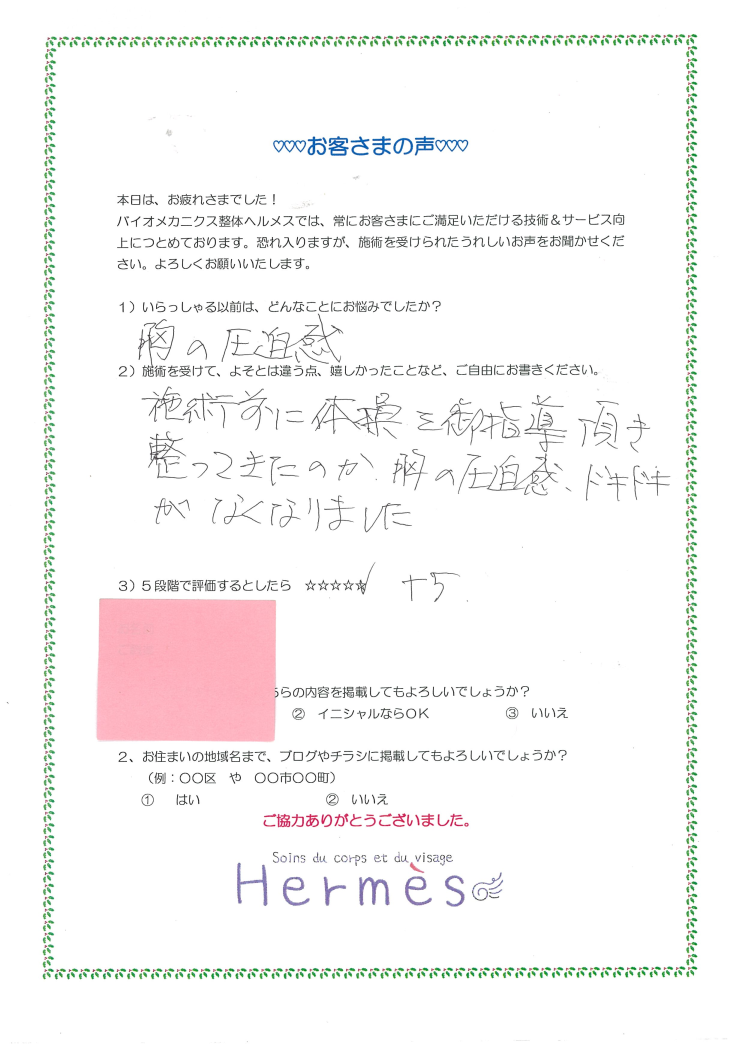 ♡♡♡お客さまの声♡♡♡
本日は、お疲れさまでした！
バイオメカニクス整体ヘルメスでは、常にお客さまにご満足いただける技術＆サービス向
上につとめております。恐れ入りますが、施術を受けられたうれしいお声をお聞かせくだ
さい。よろしくお願いいたします。
1）いらっしゃる以前は、どんなことにお悩みでしたか？
胸の圧迫感
2）施術を受けて、よそとは違う点、嬉しかったことなど、ご自由にお書きください。
施術前に体操を御指導頂き
整ってきたのか、胸の圧迫感、ドキドキ
がなくなりました
3）5段階で評価するとしたら ☆☆☆☆☆ +5
らの内容を掲載してもよろしいでしょうか？
② イニシャルならOK ③ いいえ
2、お住まいの地域名まで、ブログやチラシに掲載してもよろしいでしょうか？
（例：〇〇区 や 〇〇市〇〇町）
① はい ② いいえ
ご協力ありがとうございました。
Soins du corps et du visage
Hermès